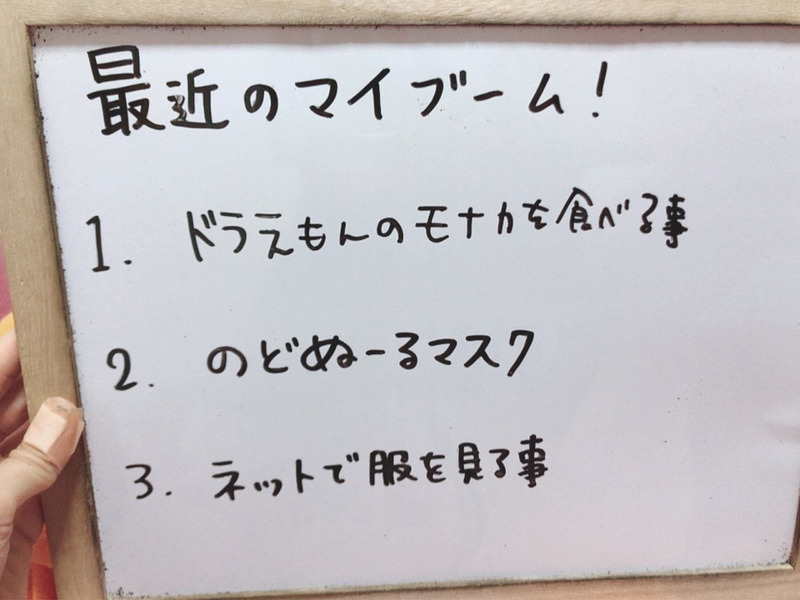 最近のマイブーム!
1. ドラえもんのモナカを食べる事
2. のどぬーるマスク
3. ネットで服を見る事